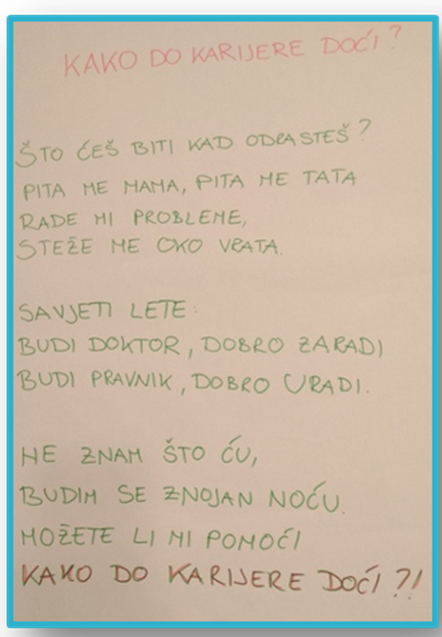 KAKO DO KARIJERE DOĆI?
ŠTO ĆEŠ BITI KAD ODRASTEŠ?
PITA ME MAMA, PITA ME TATA
RADE MI PROBLEME,
STEŽE ME OKO VRATA.
SAVJETI LETE:
BUDI DOKTOR, DOBRO ZARADI
BUDI PRAVNIK, DOBRO URADI.
NE ZNAM ŠTO ĆU,
BUDIM SE ZNOJAN NOĆU.
MOŽETE LI MI POMOĆI
KAKO DO KARIJERE DOĆI?!